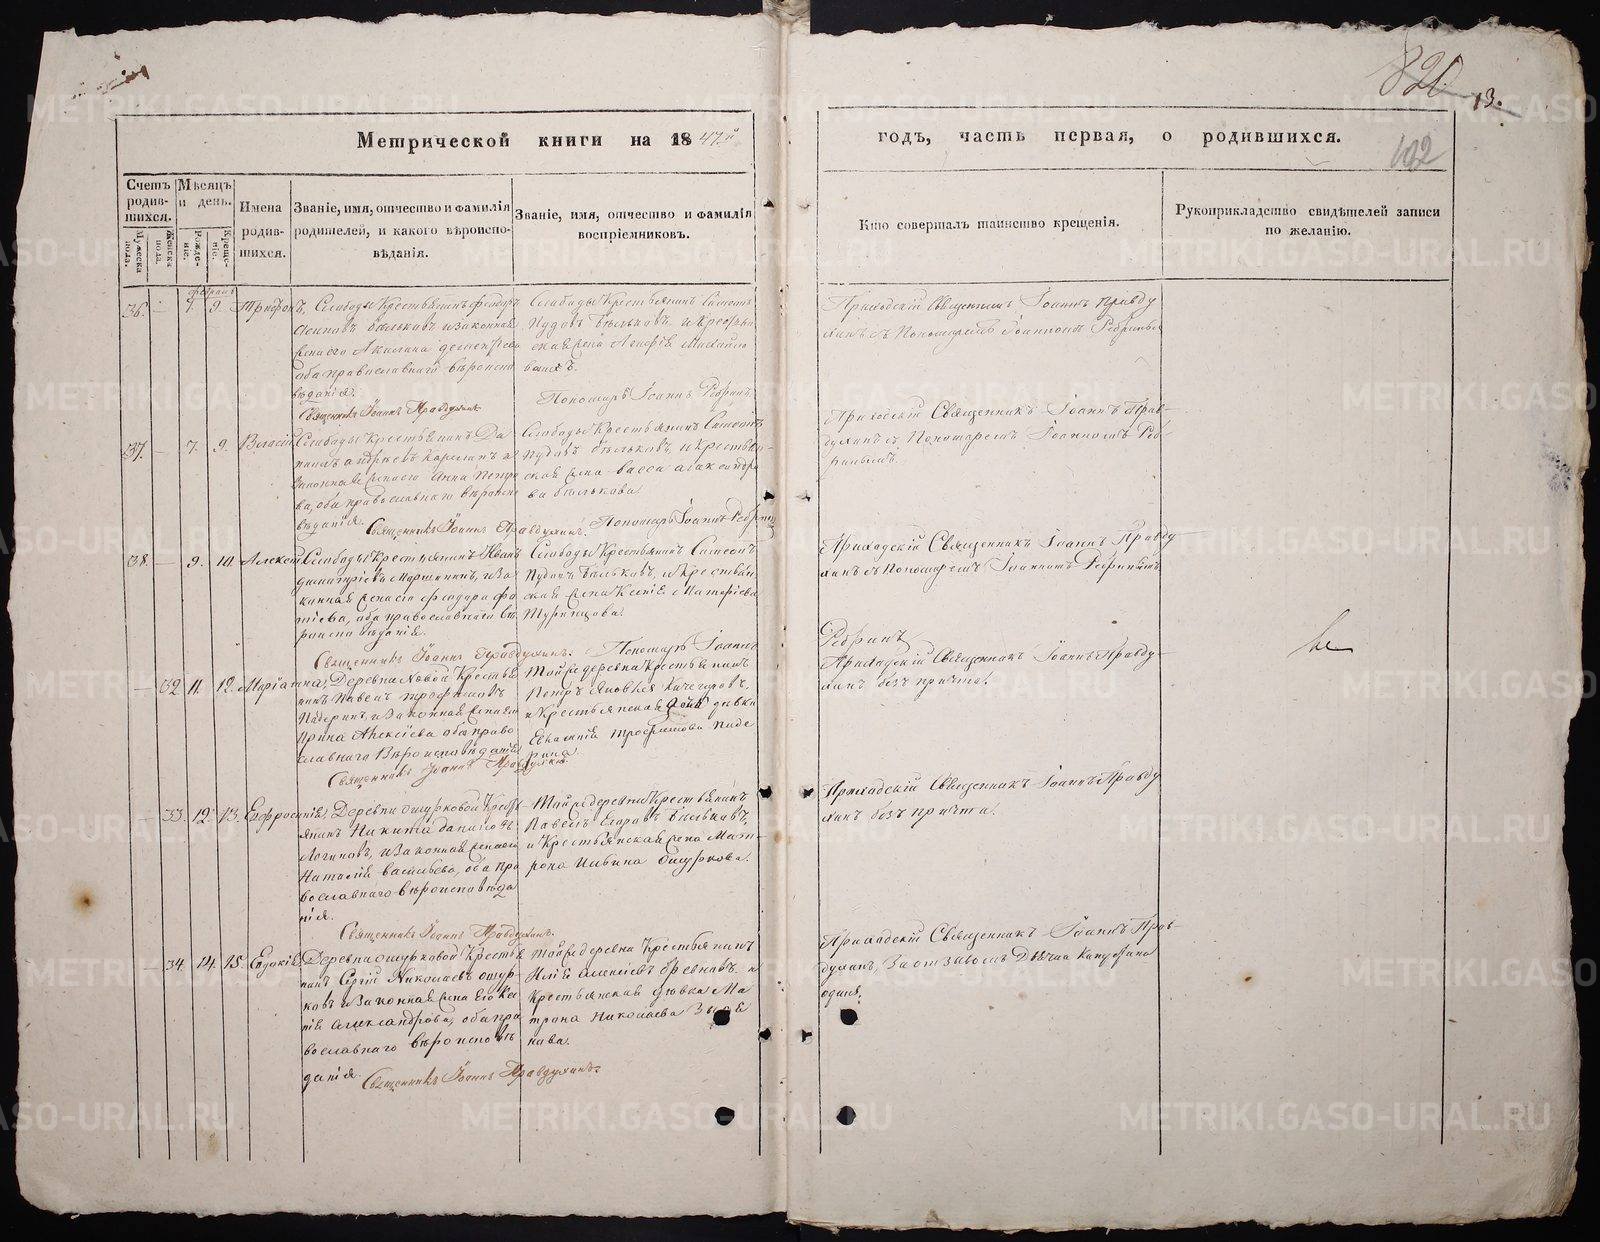 820
13.
102
Метрической книги на 1847й
годъ, часть первая, о родившихся.
Счетъ родив-шихся.
Мѣсяцъ и день.
Имена родив-шихся.
Званіе, имя, отчество и фамилія родителей, и какого вѣроиспо-вѣданія.
Званіе, имя, отчество и фамилія воспріемниковъ.
Кто совершалъ таинство крещенія.
Рукоприкладство свидѣтелей записи по желанію.
Мужеска пола.
Женска пола.
Рожде-ніе.
Креще-ніе.
36. 7. 9. Трифонъ
Слободы Крестьянинъ Феодоръ
Осиповъ Бѣльковъ и законная
жена его Акилина
оба православнаго вѣроиспо
вѣданія.
Священникъ Іоаннъ Правдухинъ
Слободы Крестьянинъ Симеонъ
Пудовъ Бѣльковъ, и Крестьян
ская жена Михайло
Пономарь Іоаннъ Ребринъ
Приходскій Священникъ Іоаннъ Правду
хинъ съ Пономаремъ Іоанномъ Ребринымъ
37. 7. 9. Власій
Слободы Крестьянинъ Да
нилъ Андреевъ
законная жена его Анна Петро
ва, оба православнаго вѣроиспо
вѣданія.
Священникъ Іоаннъ Правдухинъ.
Слободы Крестьянинъ Симеонъ
Пудовъ Бѣльковъ, и Крестьян
ская жена Васса Александро
ва Бѣлькова
Пономарь Іоаннъ Ребринъ
Приходскій Священникъ Іоаннъ Прав-
духинъ съ Пономаремъ Іоанномъ Реб-
ринымъ.
38. 9. 10. Алексій
Слободы Крестьянинъ Иванъ
Димитріевъ и за
конная жена его Феодора Фо
тіева, оба православнаго вѣ
роисповѣданія.
Священникъ Іоаннъ Правдухинъ.
Слободы Крестьянинъ Симеонъ
Пудовъ Бѣльковъ, и Крестьян
ская жена Ксенія
Пономарь Іоаннъ
Ребринъ
Приходскій Священникъ Іоаннъ Правду
хинъ съ Пономаремъ Іоанномъ Ребринымъ
32 11. 12. Маріанна
Деревни Новой Крестья
нинъ Павелъ Трофимовъ
Падеринъ, и законная жена его
Ирина Алексіева оба право
славнаго Вѣроисповѣданія
Священникъ Іоаннъ Правдухинъ
Той же деревни Крестьянинъ
Петръ Яковлевъ
и Крестьянская дѣвка
Евгенія Трофимова Паде
рина
Приходскій Священникъ Іоаннъ Правду-
хинъ безъ причта.
33. 12. 13. Евфросинія
Деревни Ошурковой Кресть
янинъ Никита Даниловъ
Логиновъ, и законная жена его
Наталія Васильева, оба пра
вославнаго вѣроисповѣда
нія.
Священникъ Іоаннъ Правдухинъ.
Той же деревни Крестьянинъ
Павелъ Егоровъ Бѣльковъ,
и Крестьянская жена Мат-
рона Ильина Ошуркова.
Приходскій Священникъ Іоаннъ Правду
хинъ безъ причта.
34 14. 15. Евдокія
Деревни Ошурковой Крестья
нинъ Сергій Николаевъ Ошур-
ковъ и законная жена его Ксе
нія Александрова, оба пра
вославнаго вѣроисповѣ
данія.
Священникъ Іоаннъ Правдухинъ.
Той же деревни Крестьянинъ
Илія Алексіевъ и
Крестьянская дѣвка Ма
трона Николаева
Приходскій Священникъ Іоаннъ Прав-
духинъ, за отзывомъ
одинъ.
METRIKI.GASO-URAL.RU